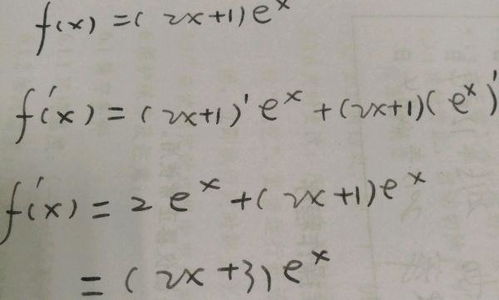 f(x) = (2x+1)e^x
f'(x) = (2x+1)' e^x + (2x+1)(e^x)'
f'(x) = 2e^x + (2x+1)e^x
= (2x+3)e^x